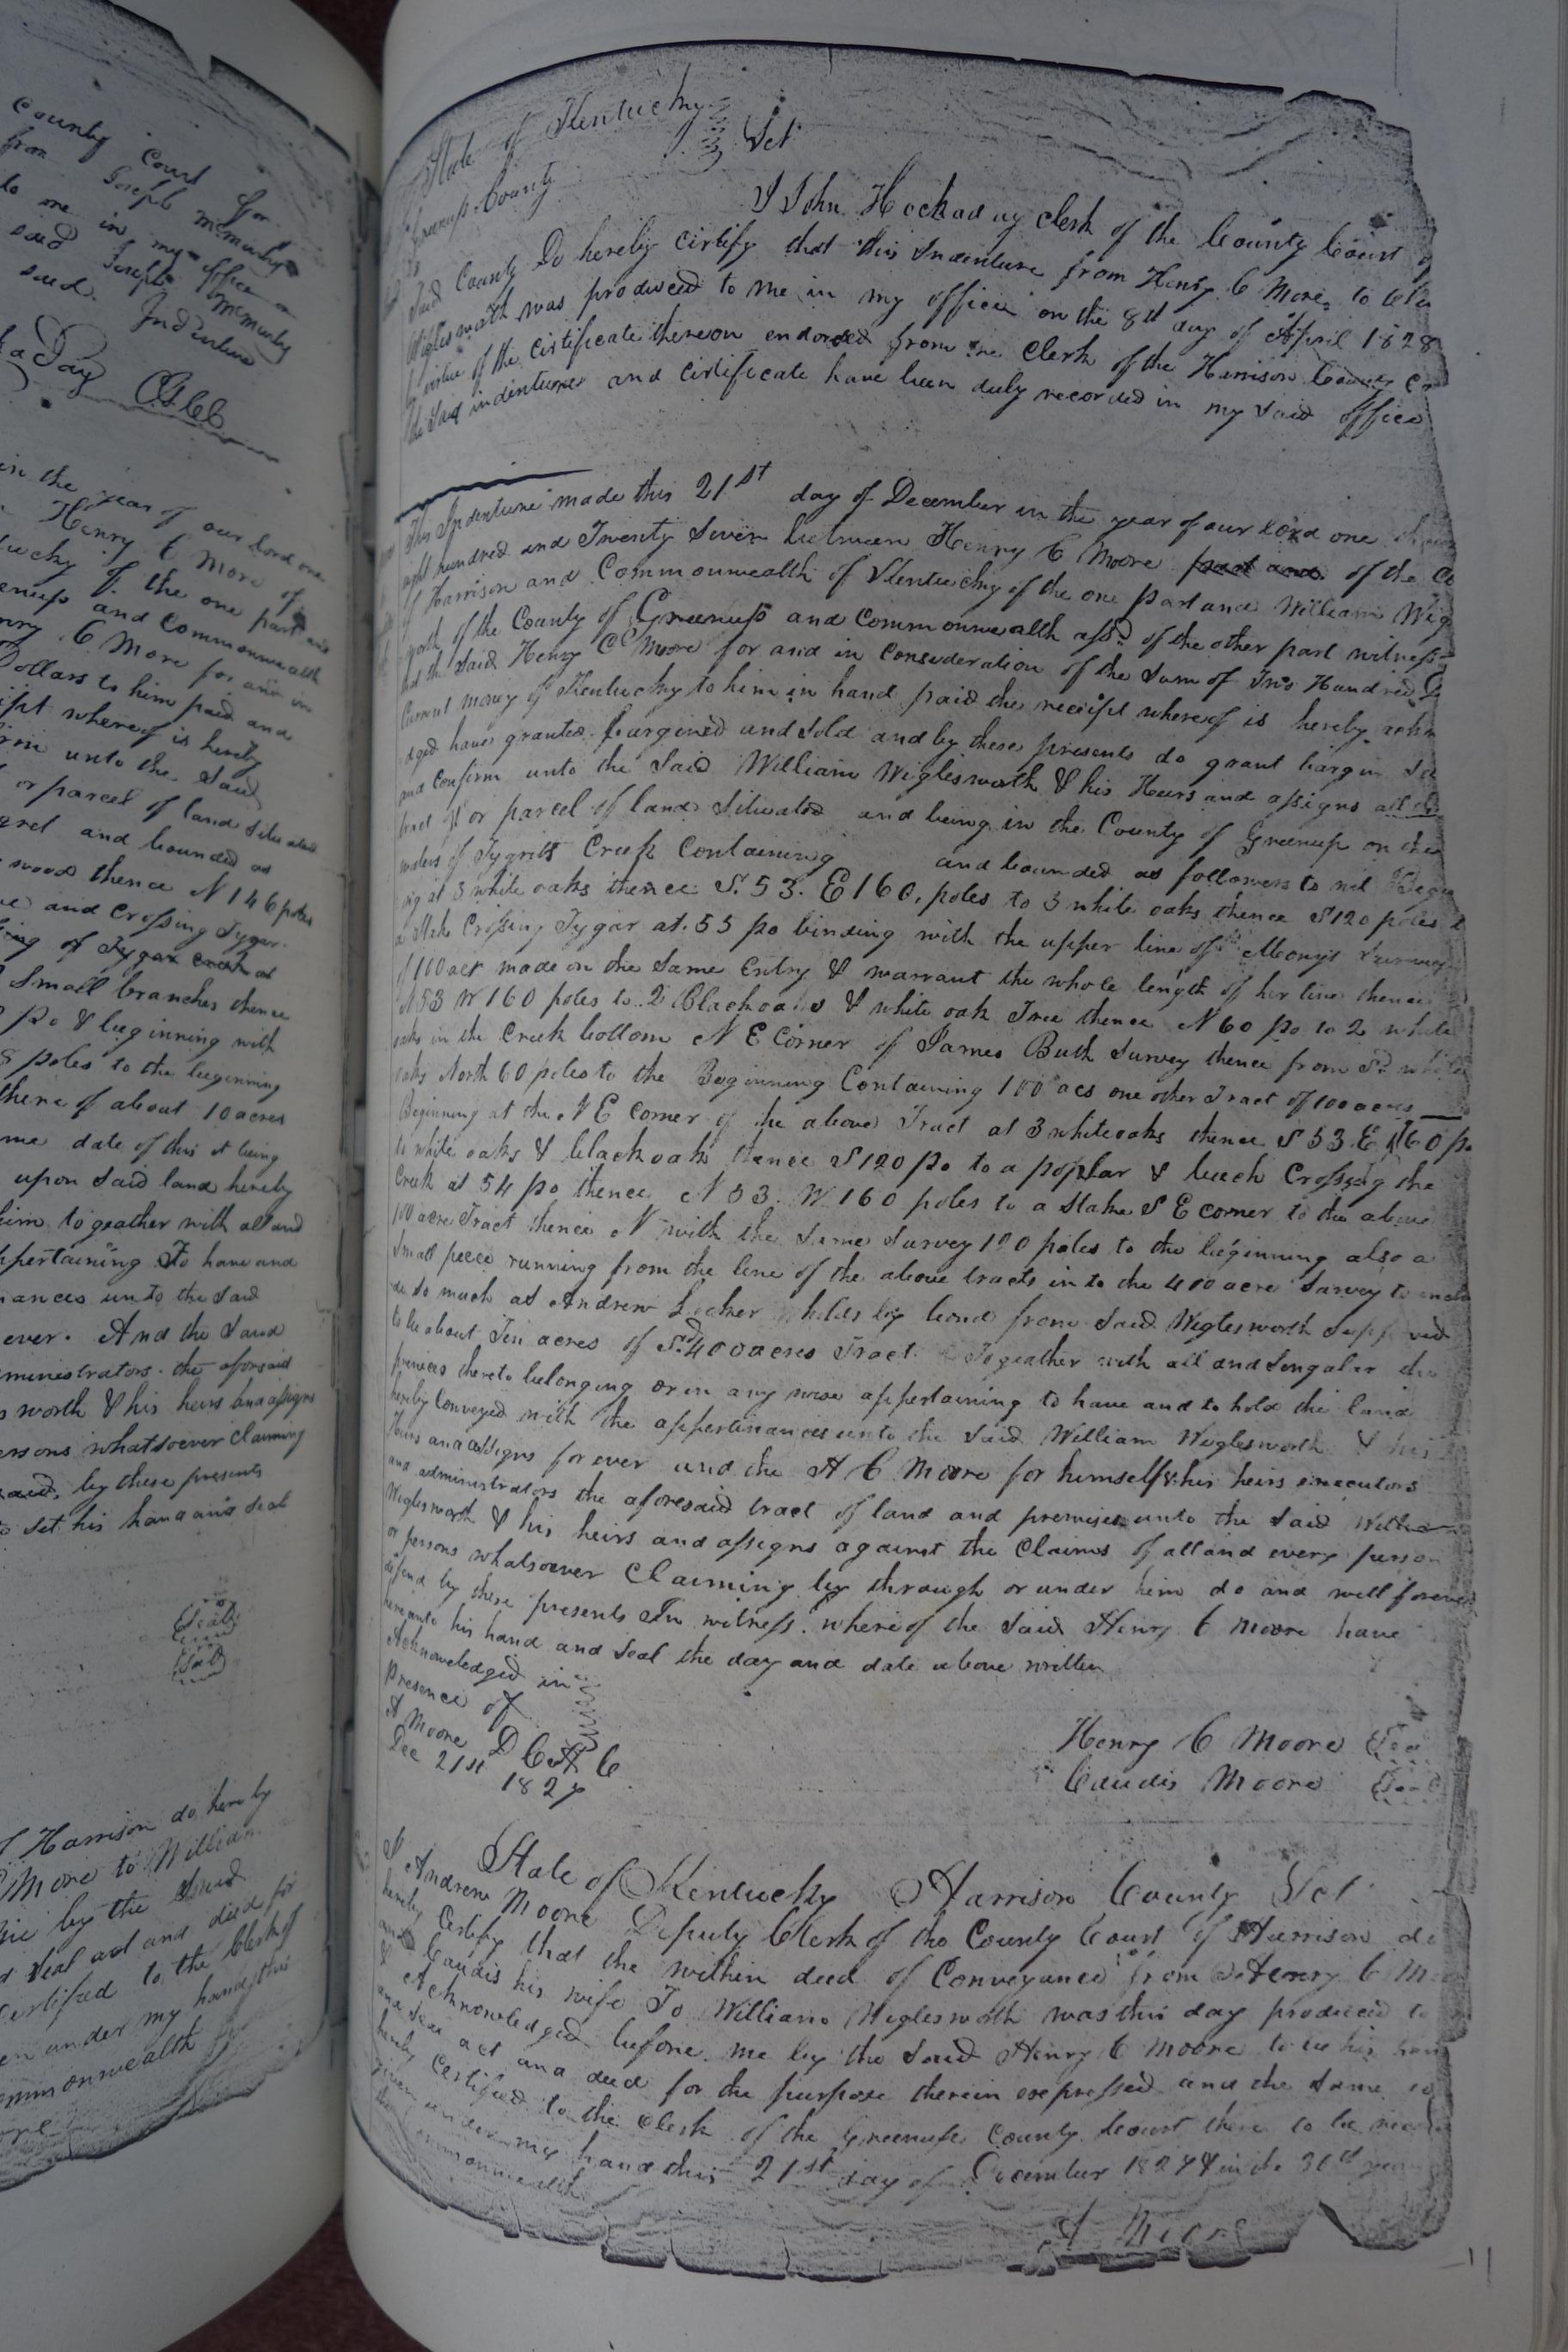 County Court for
from Joseph McMurtry
to me in my office on
said Joseph McMurtry
said Indenture
Day CGCC
in the year of our Lord one
Henry C More of
tucky of the one part and
enup and Commonwealth
nry C More for and in
Dollars to him paid and
ipt whereof is hereby
irm unto the Said
t or parcel of land Situated
and bounded as
wood thence N 146 poles
and crossing Tygar
ing of Tygar creek at
Small branches thence
po & beginning with
8 poles to the beginning
there of about 10 acres
me date of this it being
upon said land hereby
him togeather with all and
ppertaining To have and
nances unto the said
ever. And the said
ministrators the aforsaid
s worth & his heirs and assigns
ersons whatsoever Claiming
said, by these presents
to set his hand and seal
Seal
Seal
f Harrison do hereby
More to William
me by the Said
d Seal act and deed for
Certified to the Clerk of
en under my hand this
ommonwealth
State of Kentucky
Greenup County Sct
I John Hockaday clerk of the County Court of
Said County Do hereby certify that this Indenture from Henry C More to
Wiglesworth was produced to me in my office on the 8th day of April 1828
by virtue of the certificate thereon endorsed from the Clerk of the Harrison County
the said indenture and certificate have been duly recorded in my said office
This Indenture made this 21st day of December in the year of our lord one
eight hundred and Twenty Seven between Henry C Moore of the
of Harrison and Commonwealth of Kentucky of the one part and William Wig
worth of the County of Greenup and Commonwealth affsd of the other part witness
that the Said Henry C Moore for and in consideration of the Sum of Two Hundred
Current money of Kentucky to him in hand paid the receipt whereof is hereby ackn
edged have granted bargined and Sold and by these presents do grant bargin
and confirm unto the Said William Wiglesworth & his Heirs and assigns all
tract or parcel of land Situated and being in the County of Greenup on the
waters of Tygrits Creek Containing and bounded as followers to wit Begin
ing at 3 white oaks thence S. 53. E 160. poles to 3 white oaks thence S 120 poles
a Stake Crossing Tygar at 55 po binding with the upper line of survey
of 100 acr made on the Same Entry & warrant the whole length of her line thence
N 53 W 160 poles to 2 Black oaks & white oak Tree thence N 60 po to 2 white
oaks in the Creek bottom N E Corner of James Buth Survey thence from Sd white
oaks North 60 poles to the Beginning Containing 100 acs one other Tract of 100 acres
Beginning at the N E corner of the above Tract at 3 white oaks thence S 53 E 160 po
to white oaks & black oak thence S 120 po to a poplar & beech Crossing the
Creek at 54 po thence N 53. W 160 poles to a Stake S E corner to the above
100 acre Tract thence N with the Same Survey 120 poles to the beginning also a
Small peece running from the line of the above tracts in to the 400 acre Survey to
so much as Andrew holds by bond from Said Wiglesworth
to be about Ten acres of Sd 400 acres Tract Togeather with all and Singular the
premices thereto belonging or in any wise appertaining to have and to hold the land
hereby Conveyed with the appertinances unto the Said William Wiglesworth & his
Heirs and assigns forever and the H C Moore for himself & his heirs executors
and administrators the aforesaid tract of land and premises unto the Said William
Wiglesworth & his heirs and assigns against the Claims of all and every person
or persons whatsoever Claiming by through or under him do and will forever
defend by these presents In witness whereof the Said Henry C Moore have
hereunto his hand and Seal the day and date above written
Acknowledged in
presence of
A Moore D C H C
Dec 21st 1827
Henry C Moore Seal
Caudis Moore Seal
State of Kentucky Harrison County Sct
I Andrew Moore Deputy Clerk of the County Court of Harrison do
hereby Certify that the within deed of Conveyance from Henry C
and Caudis his wife To William Wiglesworth was this day produced to
& Acknowledged before me by the Said Henry C Moore to be his
and Seal act and deed for the purpose therein expressed and the Same
hereby Certified to the Clerk of the Greenup County Court there to be
given under my hand this 21st day of December 1827 & in the 36th year
the commonwealth
A Moore